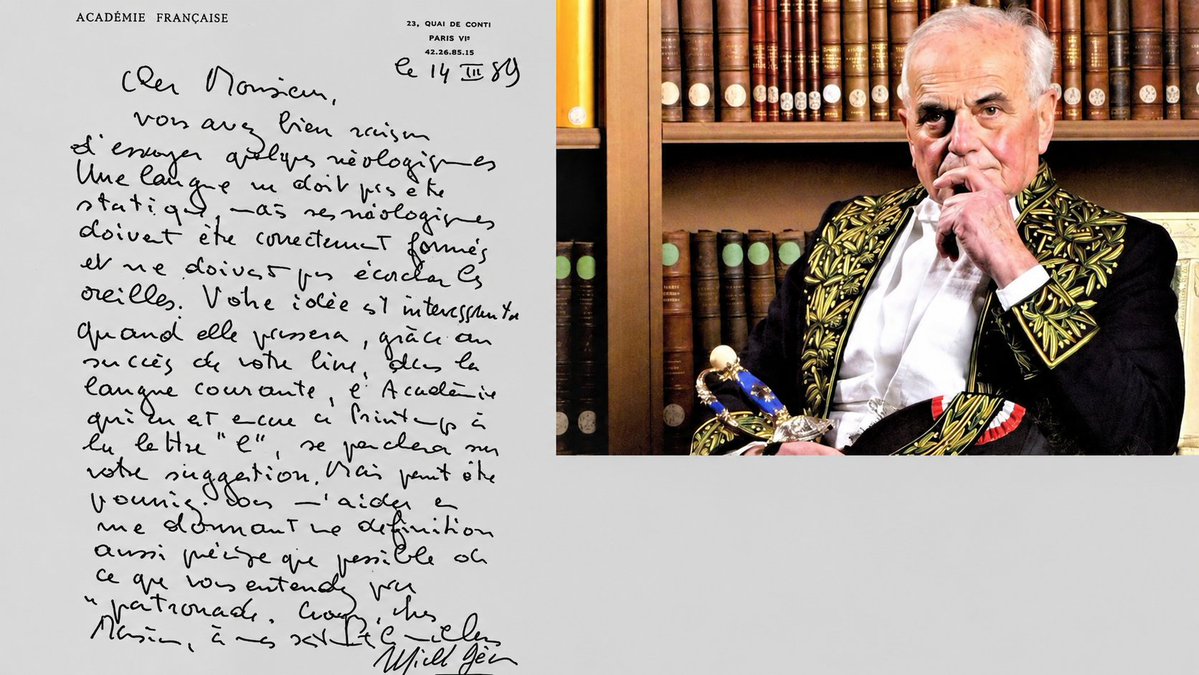 ACADÉMIE FRANÇAISE
23, QUAI DE CONTI
PARIS VIe
42.26.85.15
le 14 III 89
Cher Monsieur,
vous avez bien raison
d'essayer quelques néologismes
Une langue ne doit pas être
statique, mais ses néologismes
doivent être correctement formés
et ne doivent pas écorcher les
oreilles. Votre idée est intéressante
quand elle passera, grâce au
succès de votre livre, dans la
langue courante, l'Académie
qui en est encore ce Printemps à
la lettre "E", se penchera sur
votre suggestion. Mais peut être
pourriez-vous m'aider en
me donnant une définition
aussi précise que possible de
ce que vous entendez par
"patronade. Croyez, cher
Monsieur, à mes sentiments